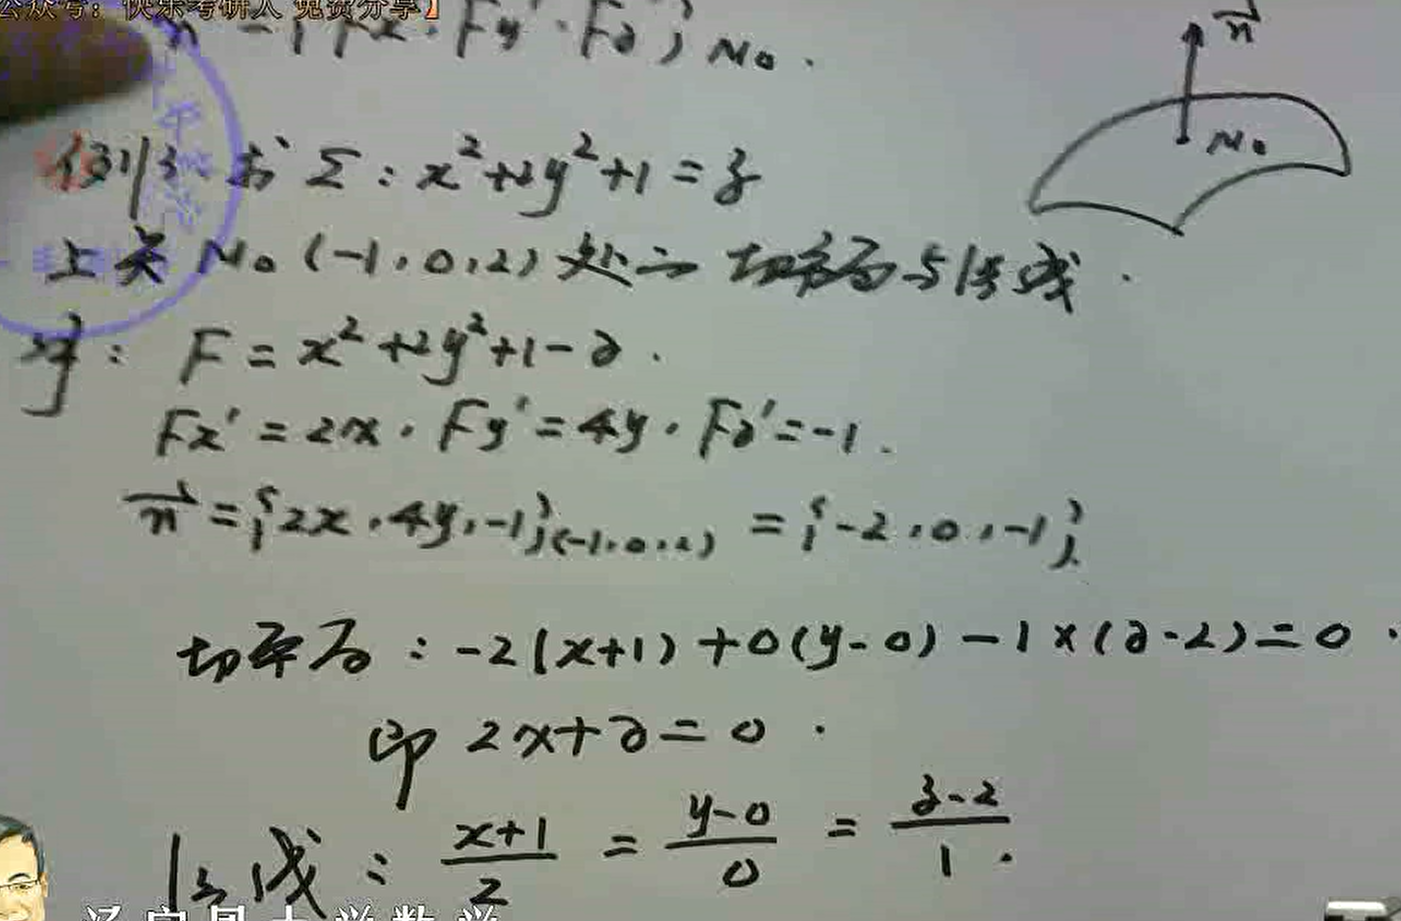 公众号：快乐考研人 免费分享】
n = {Fx'. Fy'. Fz'}M₀.
n
M₀
例3. 求Σ: x²+2y²+1=z
上点 M₀(-1,0,2) 处之切平面与法线.
解: F=x²+2y²+1-z.
Fx'=2x. Fy'=4y. Fz'=-1.
n={2x,4y,-1}(-1,0,2) = {-2,0,-1}.
切平面: -2(x+1)+0(y-0)-1×(z-2)=0.
即 2x+z=0.
法线: (x+1)/2 = (y-0)/0 = (z-2)/1.
汤家凤大学数学